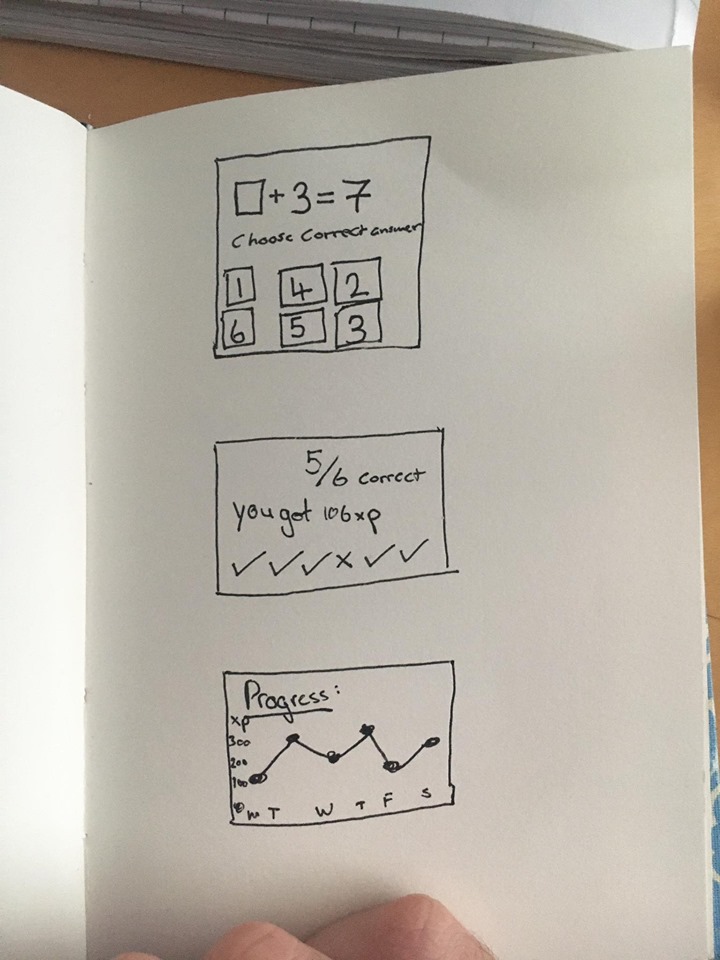 □ + 3 = 7
Choose Correct answer
1 4 2
6 5 3
5/6 correct
you got 106xp
✓ ✓ ✓ × ✓ ✓
Progress:
xp
300
200
100
0
M T W T F S